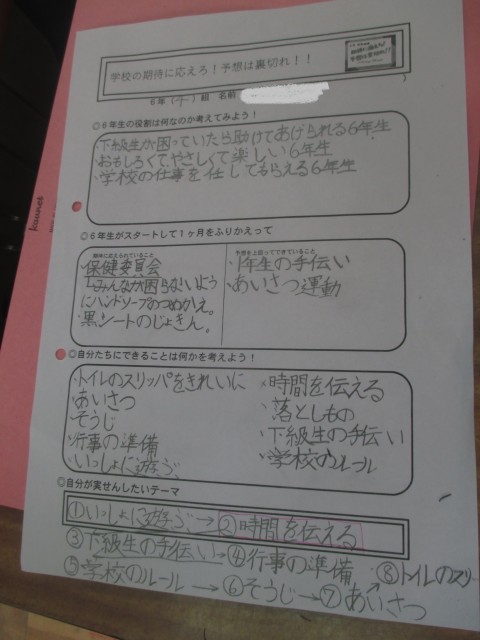 学校の期待に応えろ！予想は裏切れ！！
6年（ ）組 名前
◎6年生の役割は何なのか考えてみよう！
・下級生が困っていたら助けてあげられる6年生
・おもしろくてやさしくて楽しい6年生
・学校の仕事を任してもらえる6年生
◎6年生がスタートして1ヶ月をふりかえって
期待に応えられていること
・保健委員会
└みんなが困らないよう
にハンドソープのつめかえ。
・黒シートのじょきん。
予想を上回ってできていること
・1年生の手伝い
・あいさつ運動
◎自分たちにできることは何かを考えよう！
・トイレのスリッパをきれいに
・あいさつ
・そうじ
・行事の準備
・いっしょに遊ぶ
・時間を伝える
・落としもの
・下級生の手伝い
・学校のルール
◎自分が実せんしたいテーマ
①いっしょに遊ぶ→②時間を伝える
③下級生の手伝い→④行事の準備
⑤学校のルール→⑥そうじ→⑦あいさつ
⑧トイレのスリ
kaunet